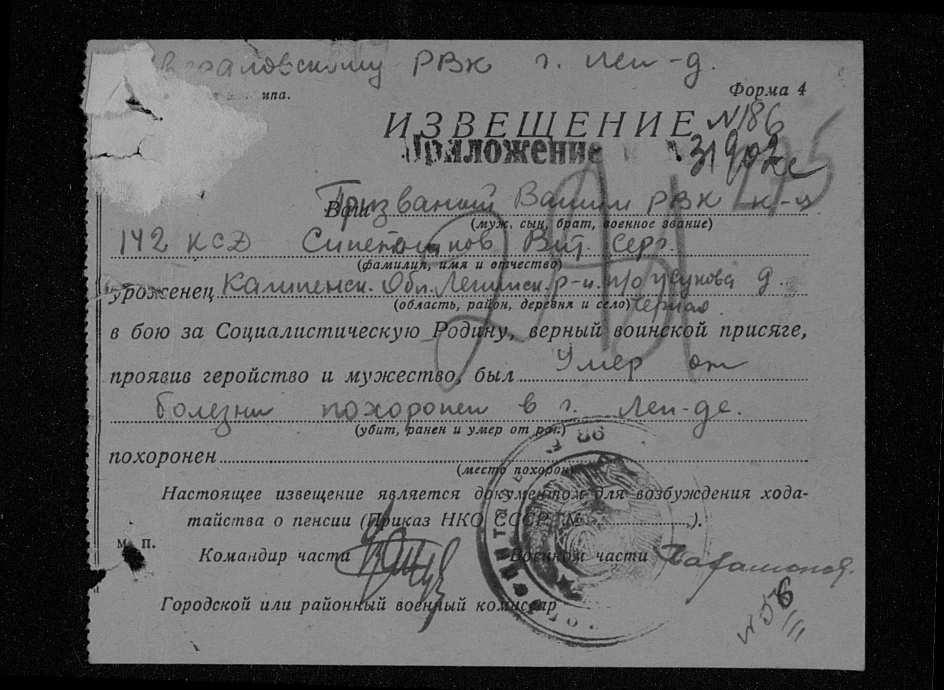 РВК г. Лен-д.
Форма 4
ИЗВЕЩЕНИЕ №186
Приложение
31902с
Ваш Призваный Вашим РВК к-ц
(муж, сын, брат, военное звание)
142 КСД Вит. Серг.
(фамилия, имя и отчество)
уроженец Калиненск. Обл. р-н. п/о д.
(область, район, деревня и село) Черная
в бою за Социалистическую Родину, верный воинской присяге,
проявив геройство и мужество, был Умер от
болезни похоронен в г. Лен-де.
(убит, ранен и умер от ран)
похоронен
(место похорон)
Настоящее извещение является документом для возбуждения хода-
тайства о пенсии (Приказ НКО СССР № ).
м. п.
Командир части Военком части
Городской или районный военный комиссар